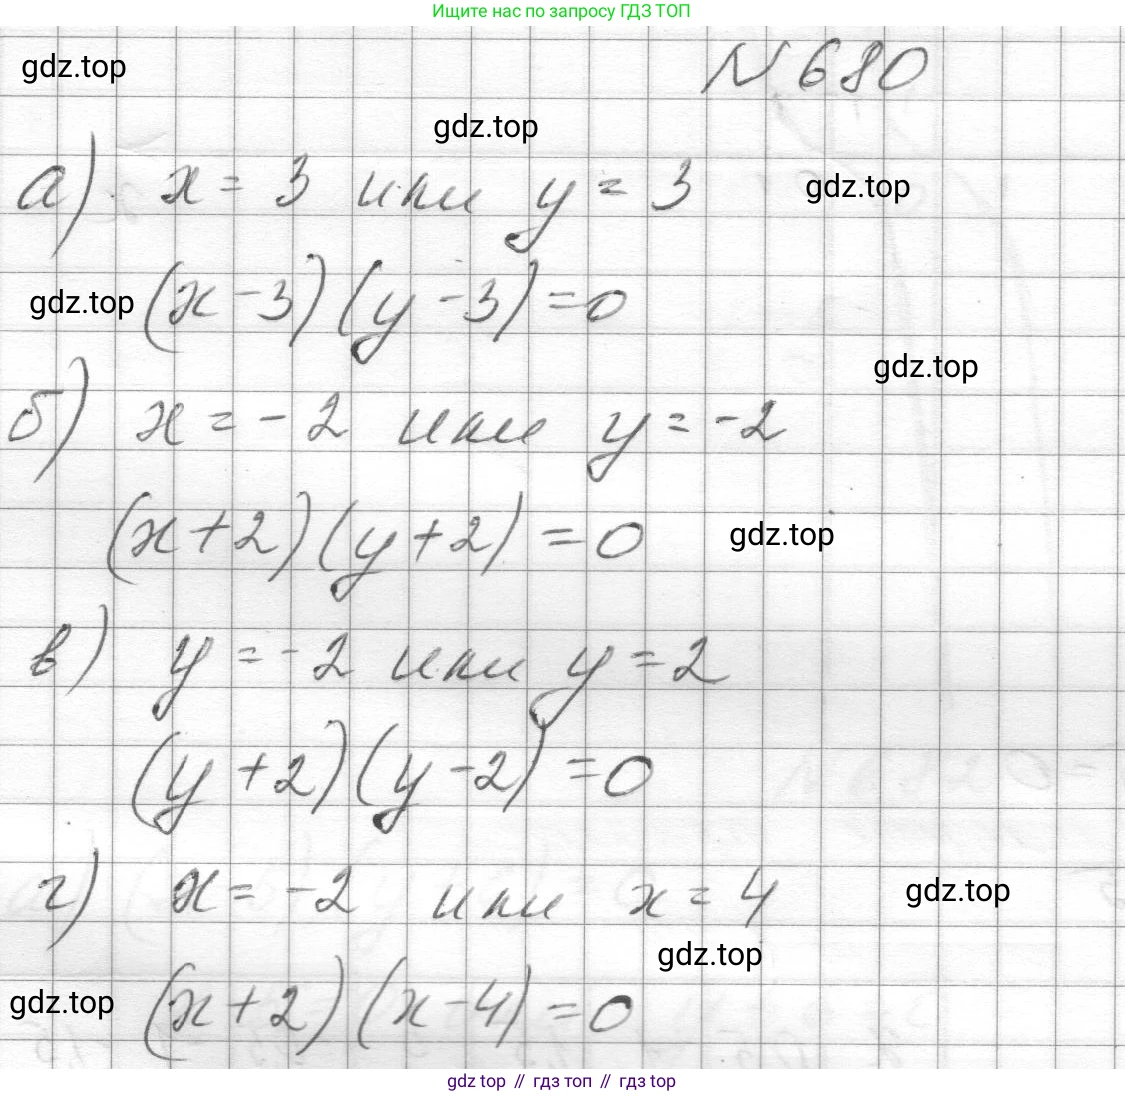 Ищите нас по запросу ГДЗ ТОП
gdz.top
N 680
gdz.top
а) x = 3 или y = 3
gdz.top
gdz.top
(x - 3)(y - 3) = 0
gdz.top
б) x = - 2 или y = -2
(x + 2)(y + 2) = 0
gdz.top
в) y = - 2 или y = 2
(y + 2)(y - 2) = 0
г) x = -2 или x = 4
gdz.top
gdz.top
gdz.top
(x + 2)(x - 4) = 0
gdz top // гдз топ // гдз top